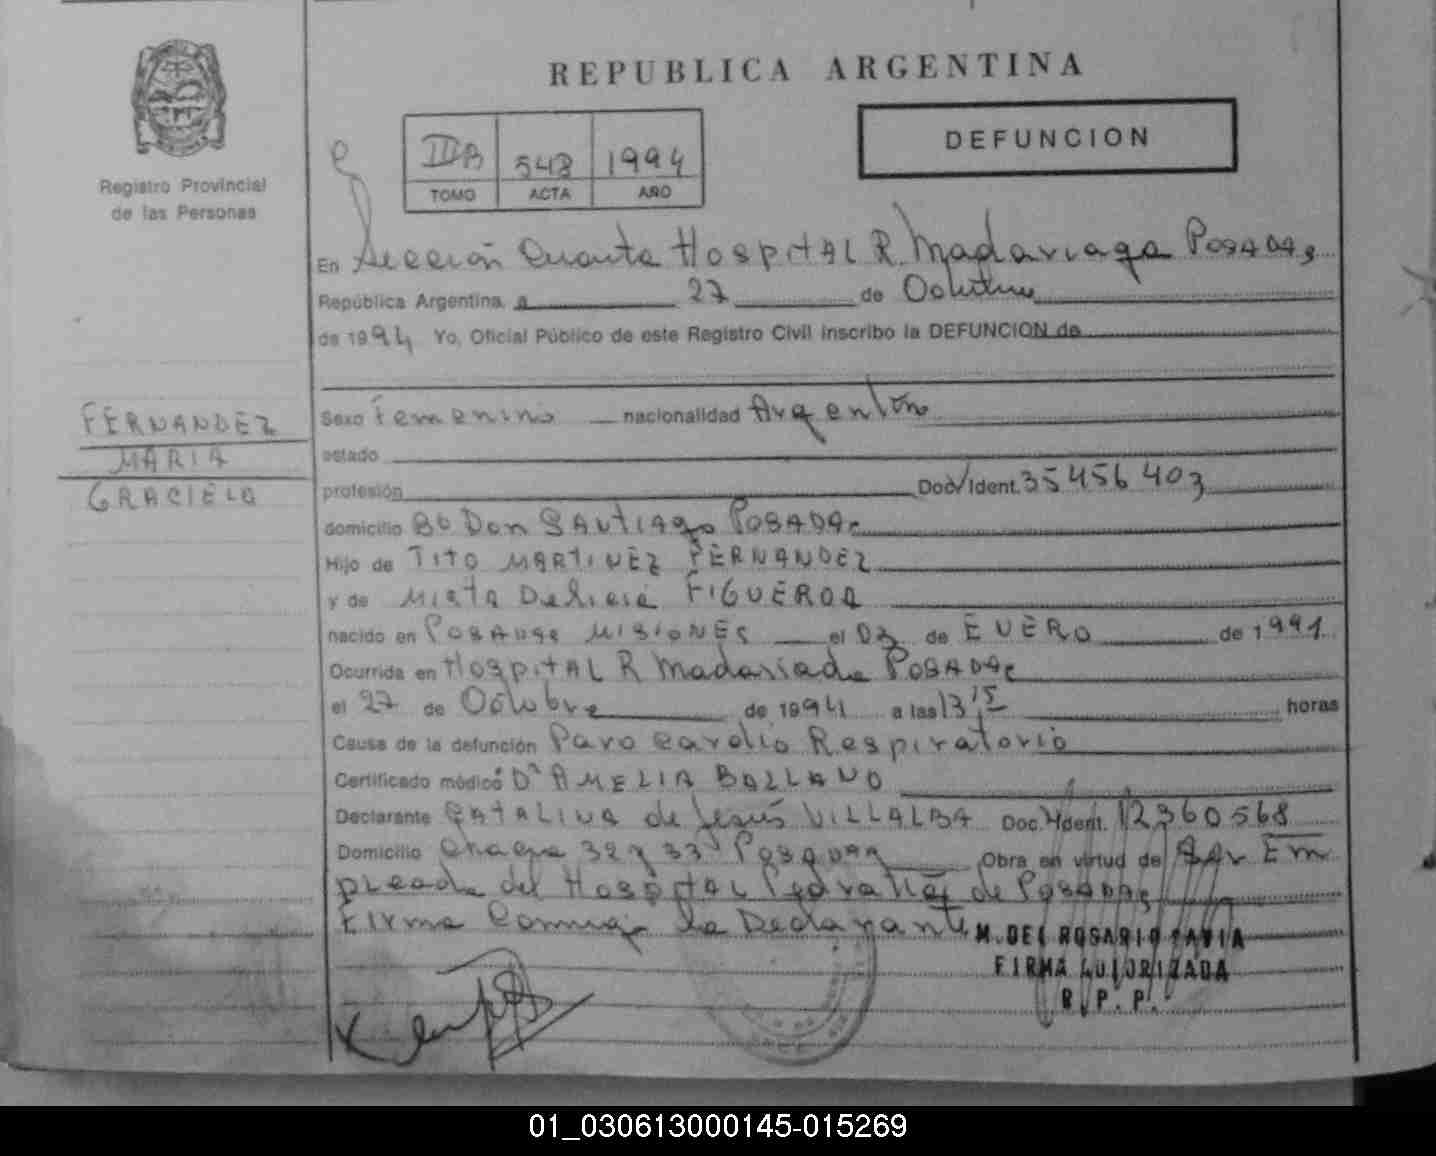 REPUBLICA ARGENTINA
DEFUNCION
IIB 548 1994
TOMO ACTA AÑO
Registro Provincial
de las Personas
En Sección Cuarta Hospital R. Madariaga Posadas
República Argentina, a 27 de Octubre
de 1994 Yo, Oficial Público de este Registro Civil inscribo la DEFUNCION de
FERNANDEZ
MARIA
GRACIELA
Sexo Femenino nacionalidad Argentina
estado
profesión Doc/Ident. 35456403
domicilio Bº Don SANTIAGO POSADAS
Hijo de TITO MARTINEZ FERNANDEZ
y de Mirta FIGUEROA
nacido en POSADAS MISIONES el 03 de ENERO de 1991
Ocurrida en HOSPITAL R Madariada POSADAS
el 27 de Octubre de 1994 a las 13,15 horas
Causa de la defunción Paro Cardio Respiratorio
Certificado médico Dra AMELIA
Declarante CATALINA de Jesús VILLALBA Doc. Ident. 12360568
Domicilio Chacra 32 y 33 POSADAS Obra en virtud de Ser Em
pleada del HOSPITAL de POSADAS
Firma Conmigo la Declarante
M. DEL ROSARIO TAVIA
FIRMA AUTORIZADA
R. P. P.
01_030613000145-015269